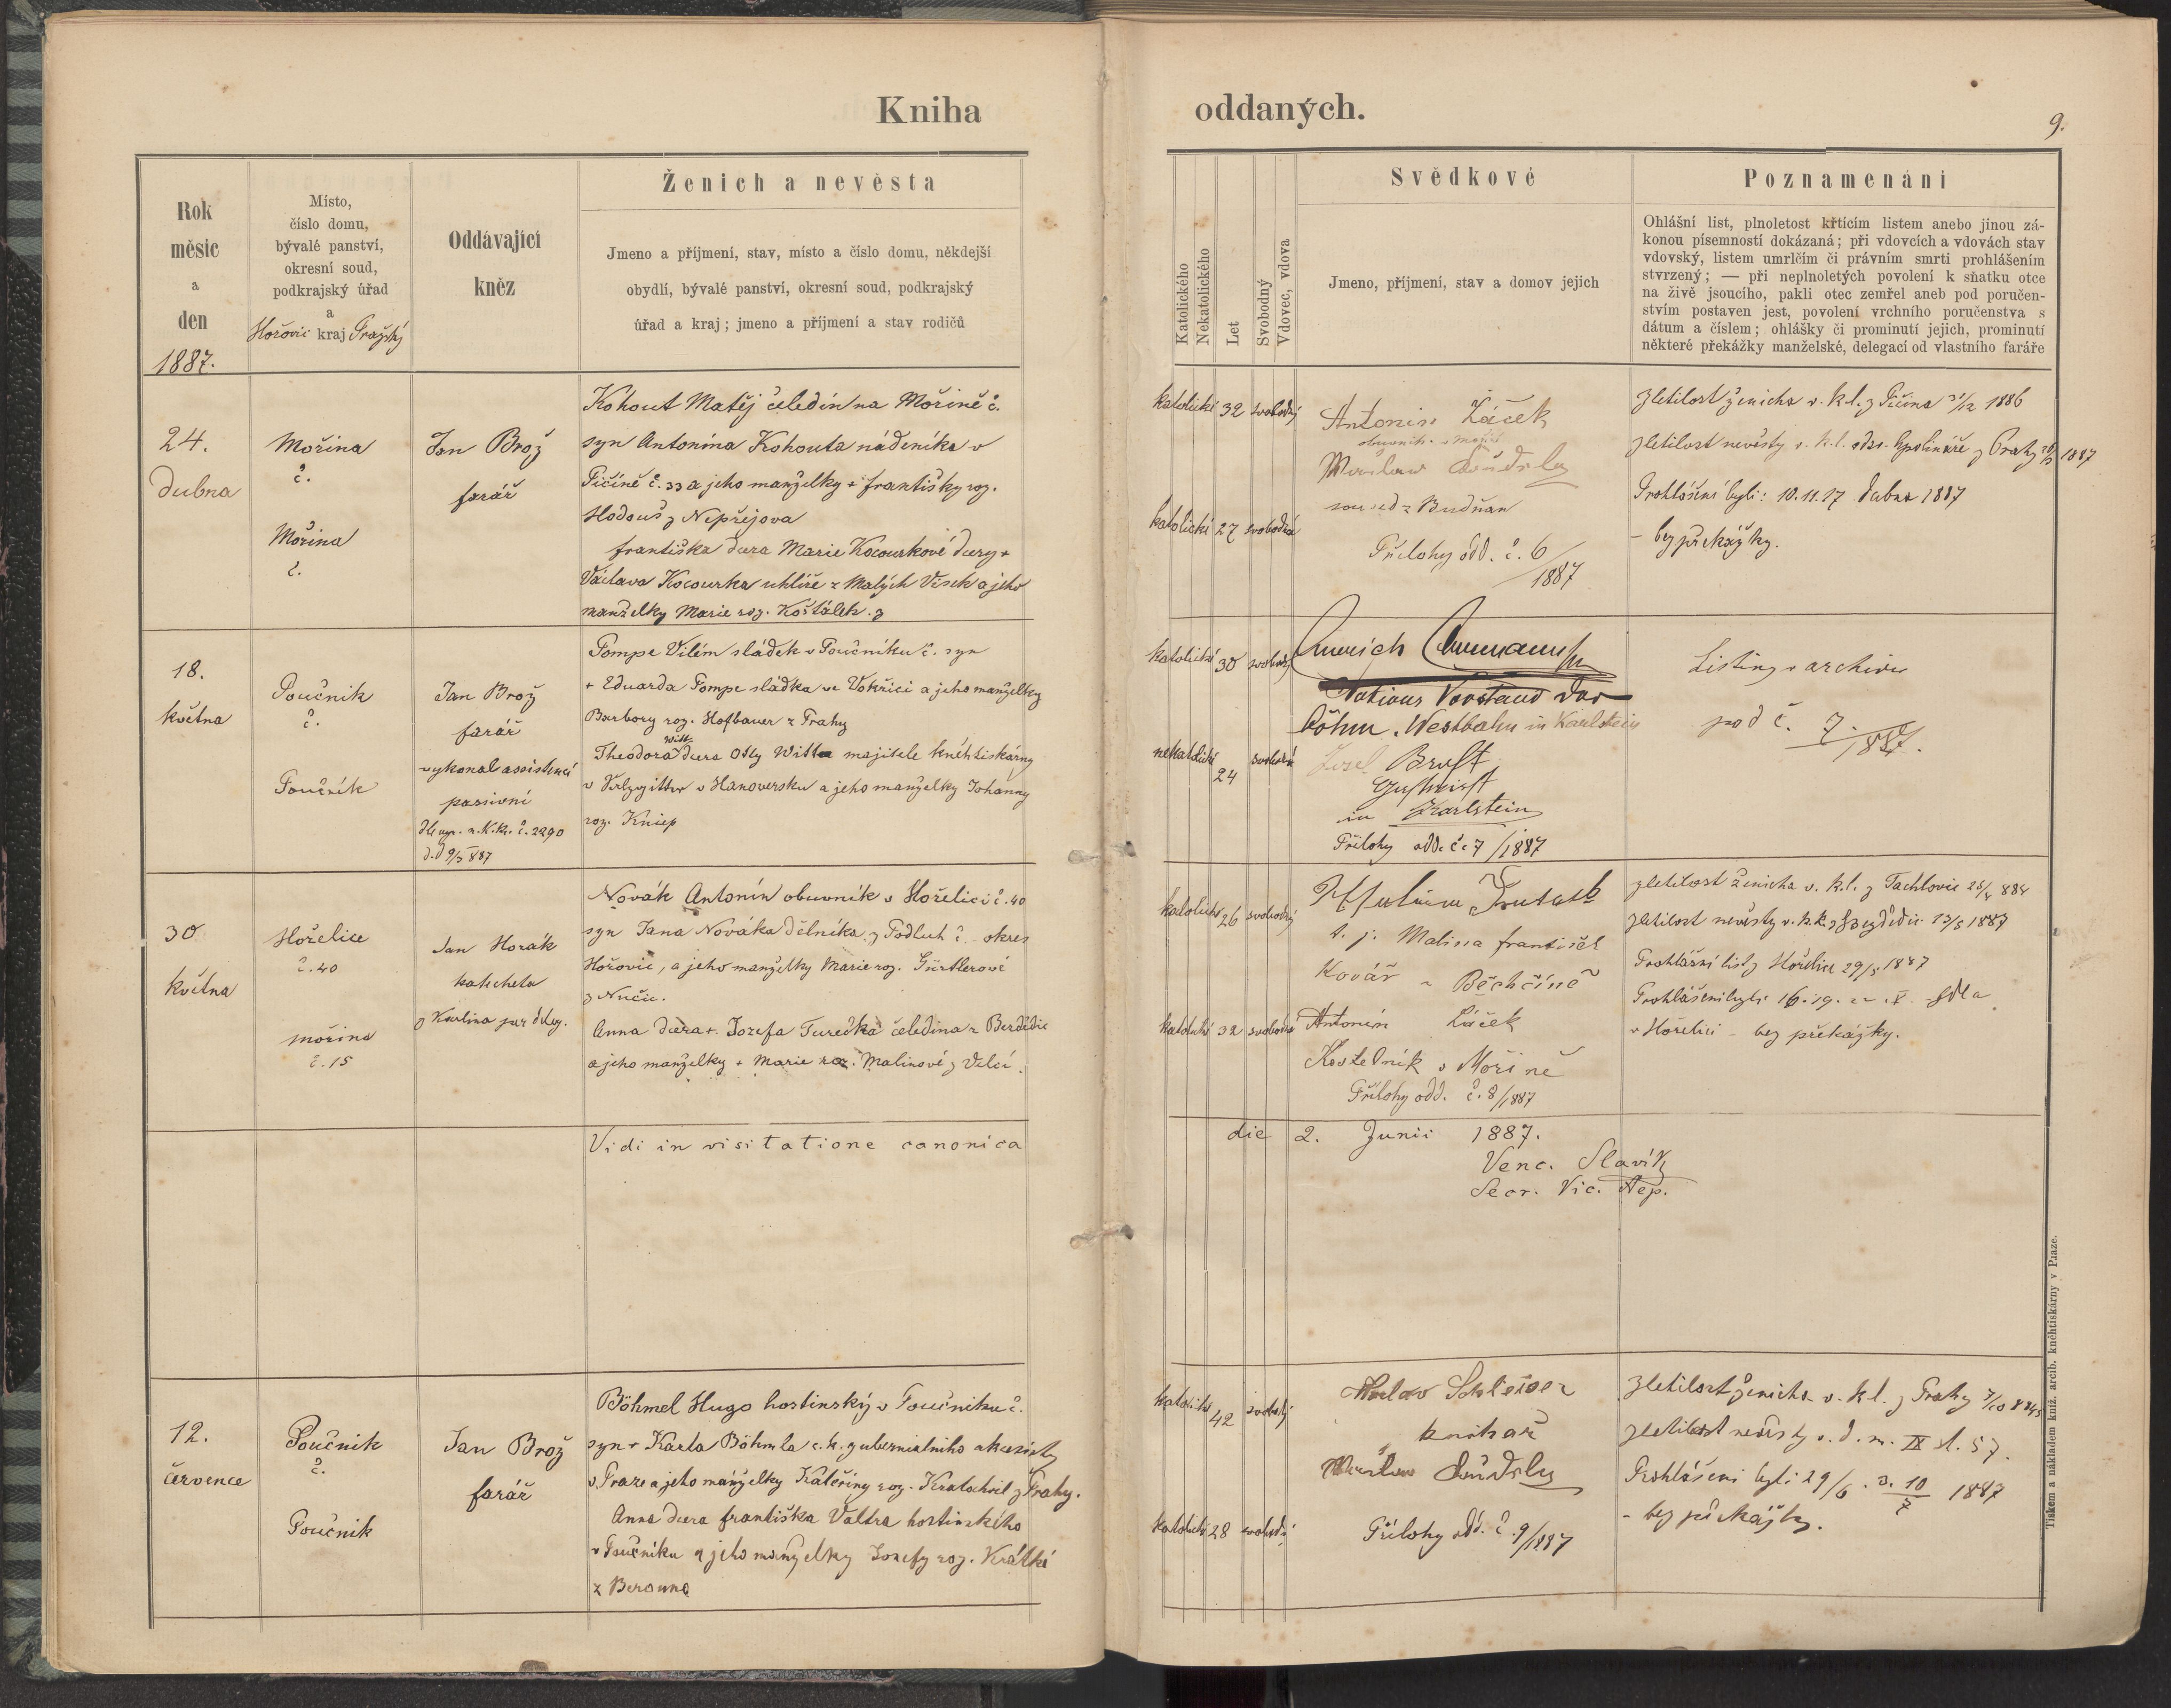 Kniha oddaných.
9.
Rok
měsíc
a
den
1887.
Místo,
číslo domu,
bývalé panství,
okresní soud,
podkrajský úřad
a
Hořovic kraj Pražský
Oddávající
kněz
Ženich a nevěsta
Jmeno a příjmení, stav, místo a číslo domu, někdejší
obydlí, bývalé panství, okresní soud, podkrajský
úřad a kraj; jmeno a příjmení a stav rodičů
Katolického
Nekatolického
Let
Svobodný
Vdovec, vdova
Svědkové
Jmeno, příjmení, stav a domov jejich
Poznamenání
Ohlášní list, plnoletost křticím listem anebo jinou zá-
konou písemností dokázaná; při vdovcích a vdovách stav
vdovský, listem umrlčím či právním smrti prohlášením
stvrzený; — při neplnoletých povolení k sňatku otce
na živě jsoucího, pakli otec zemřel aneb pod poručen-
stvím postaven jest, povolení vrchního poručenstva s
dátum a číslem; ohlášky či prominutí jejich, prominutí
některé překážky manželské, delegací od vlastního faráře
24.
dubna
Mořina
č.
Mořina
č.
Jan Brož
farář
Kohout Matěj čeledín na Mořině č.
syn Antonína Kohouta nádeníka v
Pičíně č. 33 a jeho manželky + františky roz.
Hodouš z Nepřejova
františka dcera Marie Kocourkové dcery +
Václava Kocourka uhlíře z Malých Vísek a jeho
manželky Marie roz. Košťálek. z
katolické 32 svobodný
katolické 27 svobodná
Antonín Žáček
soused z Budňan
Přílohy odd. č. 6/1887
zletilost ženicha v. k.l. z Pičína 31/12 1886
zletilost nevěsty v. k.l. z Prahy 1887
Prohlášení byli: 10. 11. 17 dubna 1887
– bez překážky.
18.
května
Poučník
č.
Poučník
Jan Brož
farář
vykonal assistenci
passivní
č. 2290
d.d 9/5 887
Pompe Vilém sládek v Poučníku č. syn
+ Eduarda Pompe sládka ve Vokřici a jeho manželky
Barbory roz. Hofbauer z Prahy
Witt
Theodora dcera Otty Witta majitele knihtiskárny
v Hanoversku a jeho manželky Johanny
roz. Kniep
katolické 30 svobodný
nekatolické 24 svobodná
Stations Vorstand der
böhm. Westbahn in Karlstein
Josef
in Karlstein
Přílohy odd. č. 7/1887
Listiny v archivu
pod č. 7./1887.
30
května
Hořelice
č. 40
mořina
č. 15
Jan Horák
katecheta
z Karlína per deleg.
Novák Antonín obuvník v Hořelici č. 40
syn Jana Nováka dělníka z Podluh č. okres
Hořovic, a jeho manželky Marie roz. Gürtlerové
z Nučic.
Anna dcera +. Josefa Turečka čeledína z Berdědic
a jeho manželky + Marie roz. Malinové z Velcí.
katolické 26 svobodný
katolické 32 svobodná
t. j. Malina františek
Kovář v Běchčíně
Antonín Žáček
Kostelník v Mořině
Přílohy odd. č. 8/1887
zletilost ženicha v. k.l. z Tachlovic 25/4 884
zletilost nevěsty v. 13/5 1887
Prohlášní list z Hořelice 29/5 1887
Prohlášeni byli 16. 19. 22. V.
v Hořelici – bez překážky.
Vidi in visitatione canonica die 2. Junii 1887.
Venc. Slavík
Secr. Vic. Aep.
12.
července
Poučník
č.
Poučník
Jan Brož
farář
Böhmel Hugo hostinský v Poučníku č.
syn + Karla Böhmla c.k. gubernialního akcesisty
v Praze a jeho manželky Kateřiny roz. Kratochvil z Prahy.
Anna dcera františka Valtra hostinského
v Poučníku a jeho manželky Josefy roz. Krátké
z Berouna
katolické 42 svobodný
katolické 28 svobodná
knihař
Přílohy odd. č. 9/1887
zletilost ženicha v. k.l. z Prahy
zletilost nevěsty v. d. m. IX st. 57.
Prohlášeni byli 29/6. 3. 10/7 1887
– bez překážky.
Tiskem a nákladem kníž. arcib. knihtiskárny v Praze.